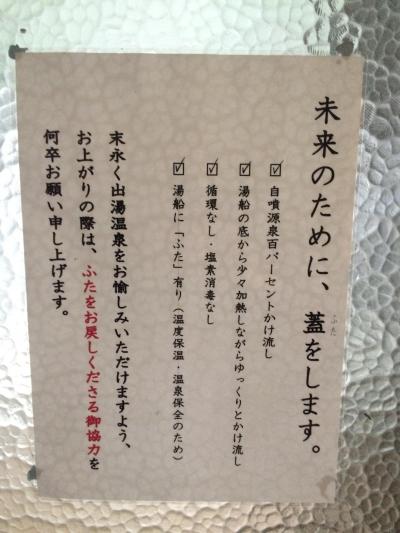 未来のために、蓋をします。
ふた
☑ 自噴源泉百パーセントかけ流し
☑ 湯船の底から少々加熱しながらゆっくりとかけ流し
☑ 循環なし・塩素消毒なし
☑ 湯船に「ふた」有り（温度保温・温泉保全のため）
末永く出湯温泉をお愉しみいただけますよう、
お上がりの際は、ふたをお戻しくださる御協力を
何卒お願い申し上げます。